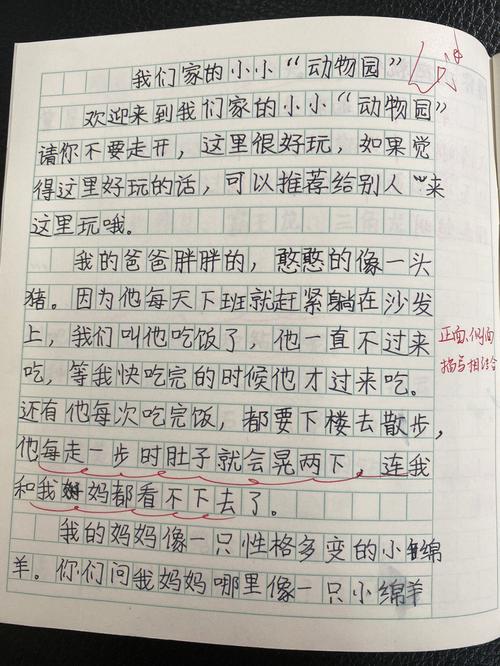 我们家的小小“动物园”
欢迎来到我们家的小小“动物园”
请你不要走开，这里很好玩，如果觉
得这里好玩的话，可以推荐给别人来
这里玩哦。
我的爸爸胖胖的，憨憨的像一头
猪。因为他每天下班就赶紧躺在沙发
上，我们叫他吃饭了，他一直不过来
吃，等我快吃完的时候他才过来吃。
还有他每次吃完饭，都要下楼去散步，
他每走一步时肚子就会晃两下，连我
和我妈妈都看不下去了。
我的妈妈像一只性格多变的小绵
羊。你们问我妈妈哪里像一只小绵羊
正面、侧面
描写相结合